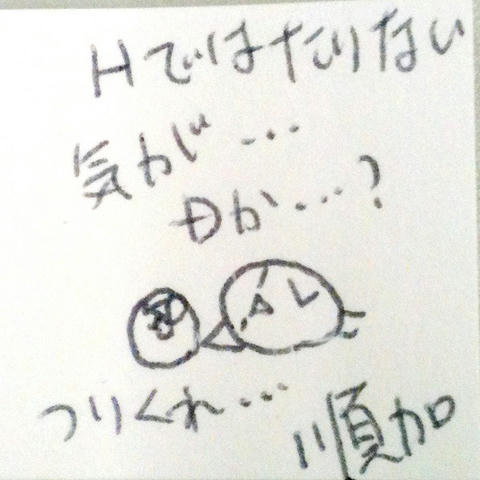 Hではたりない
気がじ…
Đか…？
つりくれ…
順加